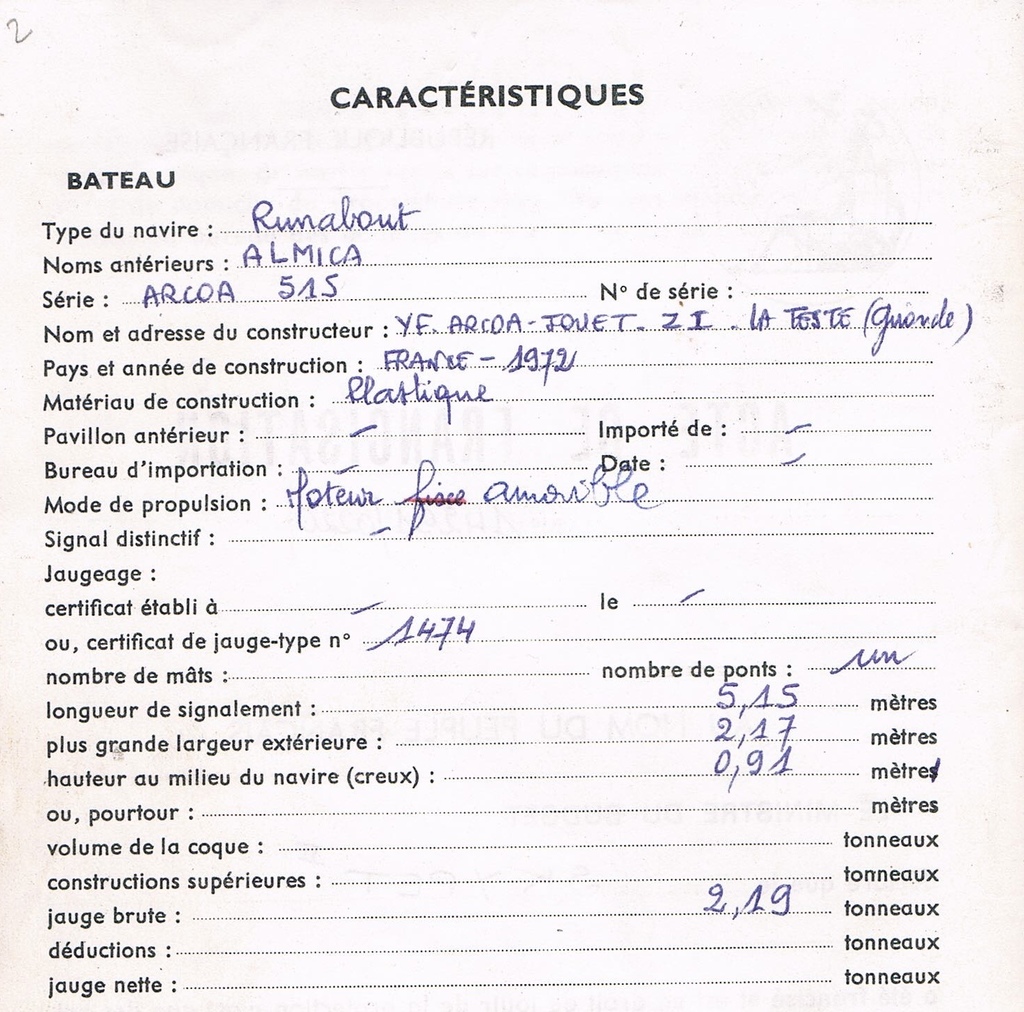 2
CARACTÉRISTIQUES
BATEAU
Type du navire : Runabout
Noms antérieurs : ALMICA
Série : ARCOA 515 N° de série :
Nom et adresse du constructeur : YF. ARCOA-JOUET. Z I. LA TESTE (Gironde)
Pays et année de construction : FRANCE - 1972
Matériau de construction : Plastique
Pavillon antérieur : - Importé de : -
Bureau d'importation : - Date : -
Mode de propulsion : Moteur fixe amovible
Signal distinctif : -
Jaugeage :
certificat établi à - le -
ou, certificat de jauge-type n° 1474
nombre de mâts : nombre de ponts : un
longueur de signalement : 5,15 mètres
plus grande largeur extérieure : 2,17 mètres
hauteur au milieu du navire (creux) : 0,91 mètres
ou, pourtour : mètres
volume de la coque : tonneaux
constructions supérieures : tonneaux
jauge brute : 2,19 tonneaux
déductions : tonneaux
jauge nette : tonneaux